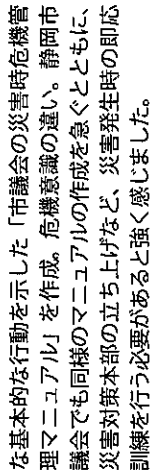 な基本的な行動を示した「市議会の災害時危機管
理マニュアル」を作成。危機意識の違い。静岡市
議会でも同様のマニュアルの作成を急ぐとともに、
災害対策本部の立ち上げなど、災害発生時の即応
訓練を行う必要があると強く感じました。